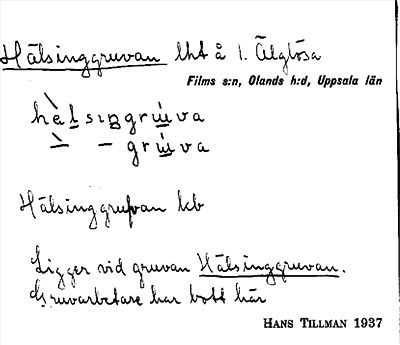 Hälsinggruvan lht å 1. Älglösa
Films s:n, Olands h:d, Uppsala län
hèlsıŋgrɯ́va
– grɯ́va
Hälsinggrufvan kb
Ligger vid gruvan Hälsinggruvan.
Gruvarbetare har bott här
HANS TILLMAN 1937